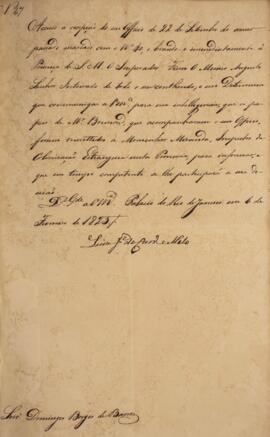 127
Accuso a recepção do seu Officio de 22 de Setembro do anno
passado e marcado com o Nº 40, e levado immediatamente á
Presença de S. M. O Imperador Ficou O Mesmo Augusto
Senhor Inteirado de todo o seu contheudo, e me Determina
que communique a Vmce para sua intelligencia, que os pa-
peis de Mr Brunod que acompanharam o seu Officio,
foram remettidos a Monsenhor Miranda, Inspector da
Colonisação Estrangeira nesta Provincia, para informar,
que em tempo competente se lhe participará a sua de-
cisão.
Ds Gde a Vmce Palacio do Rio de Janeiro em 6 de
Fevereiro de 1825
Luiz Je de Carvo e Mello
Senr Domingos Borges de Barros